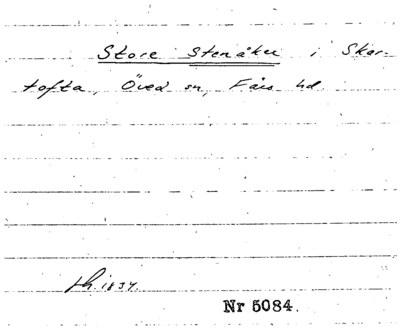 Store Stenåker i Skar-
tofta, Öved sn, Färs hd.
h. 1834.
Nr 5084.